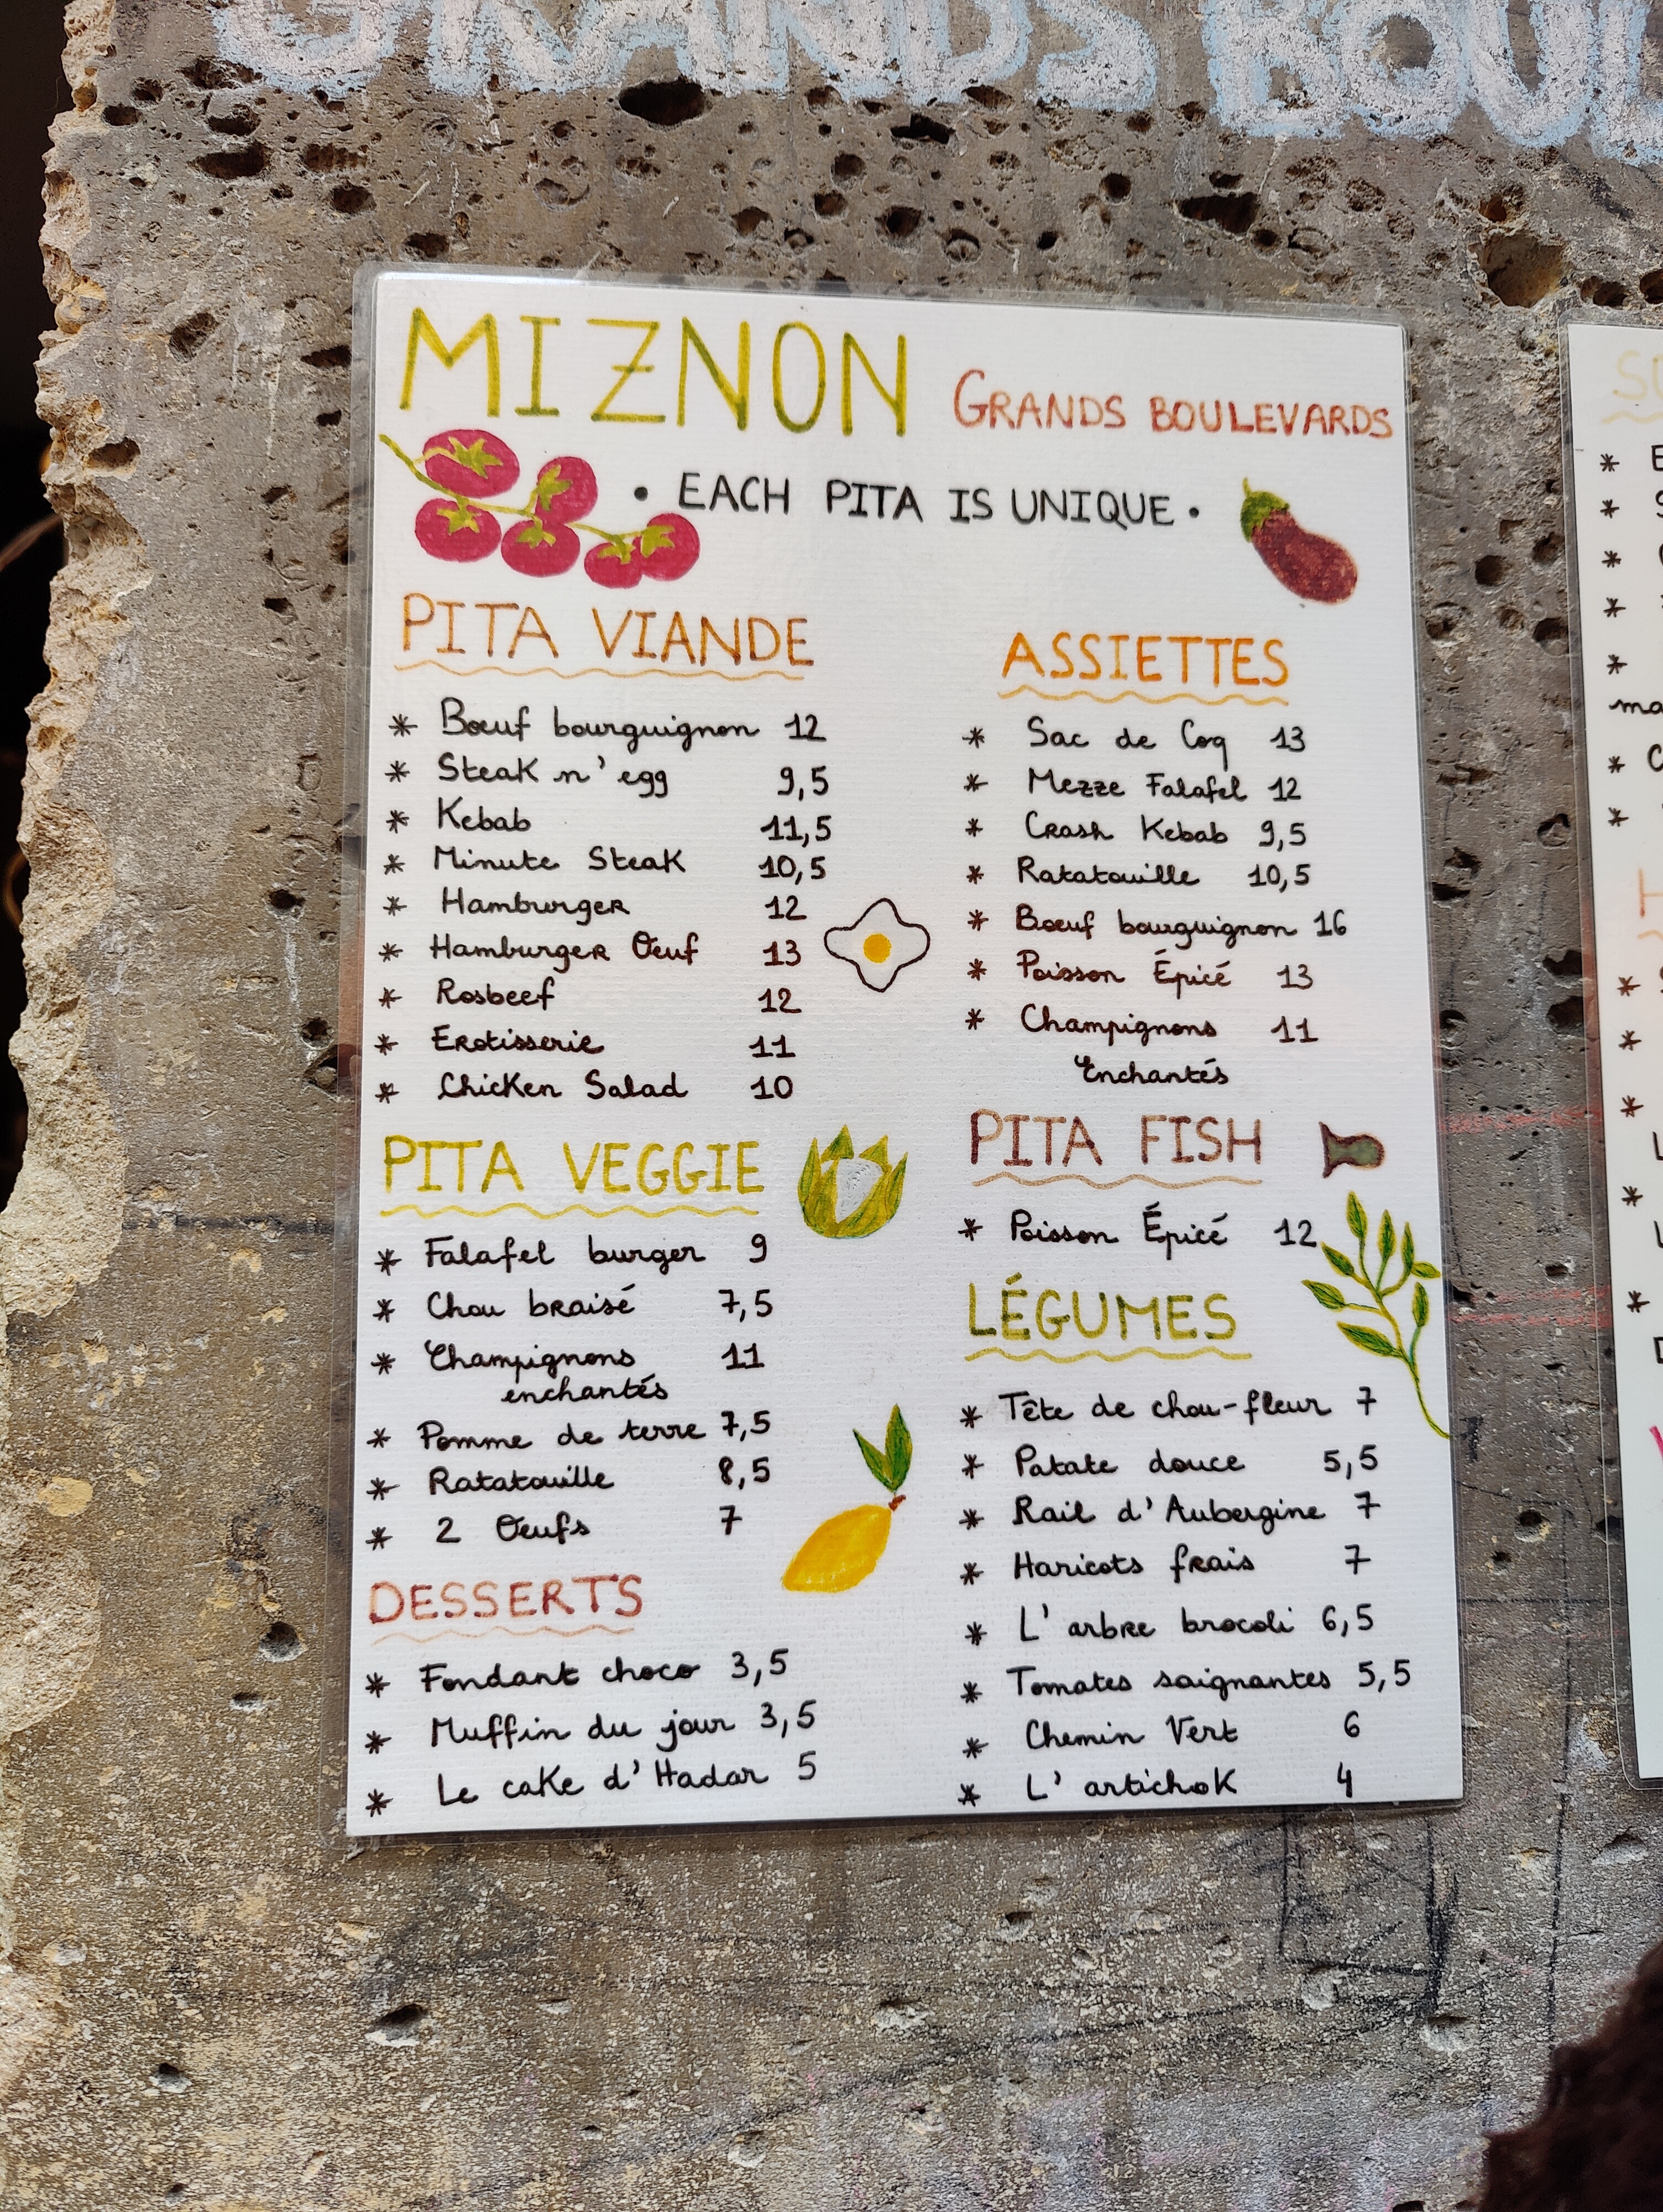 GRANDS BOUL
MIZNON GRANDS BOULEVARDS
• EACH PITA IS UNIQUE •
PITA VIANDE
* Bœuf bourguignon 12
* Steak n' egg 9,5
* Kebab 11,5
* Minute Steak 10,5
* Hamburger 12
* Hamburger Œuf 13
* Rosbeef 12
* Erotisserie 11
* Chicken Salad 10
PITA VEGGIE
* Falafel burger 9
* Chou braisé 7,5
* Champignons 11
enchantés
* Pomme de terre 7,5
* Ratatouille 8,5
* 2 Œufs 7
DESSERTS
* Fondant choco 3,5
* Muffin du jour 3,5
* Le cake d'Hadar 5
ASSIETTES
* Sac de Coq 13
* Mezze Falafel 12
* Crash Kebab 9,5
* Ratatouille 10,5
* Bœuf bourguignon 16
* Poisson Épicé 13
* Champignons 11
Enchantés
PITA FISH
* Poisson Épicé 12
LÉGUMES
* Tête de chou-fleur 7
* Patate douce 5,5
* Rail d'Aubergine 7
* Haricots frais 7
* L'arbre brocoli 6,5
* Tomates saignantes 5,5
* Chemin Vert 6
* L'artichok 4